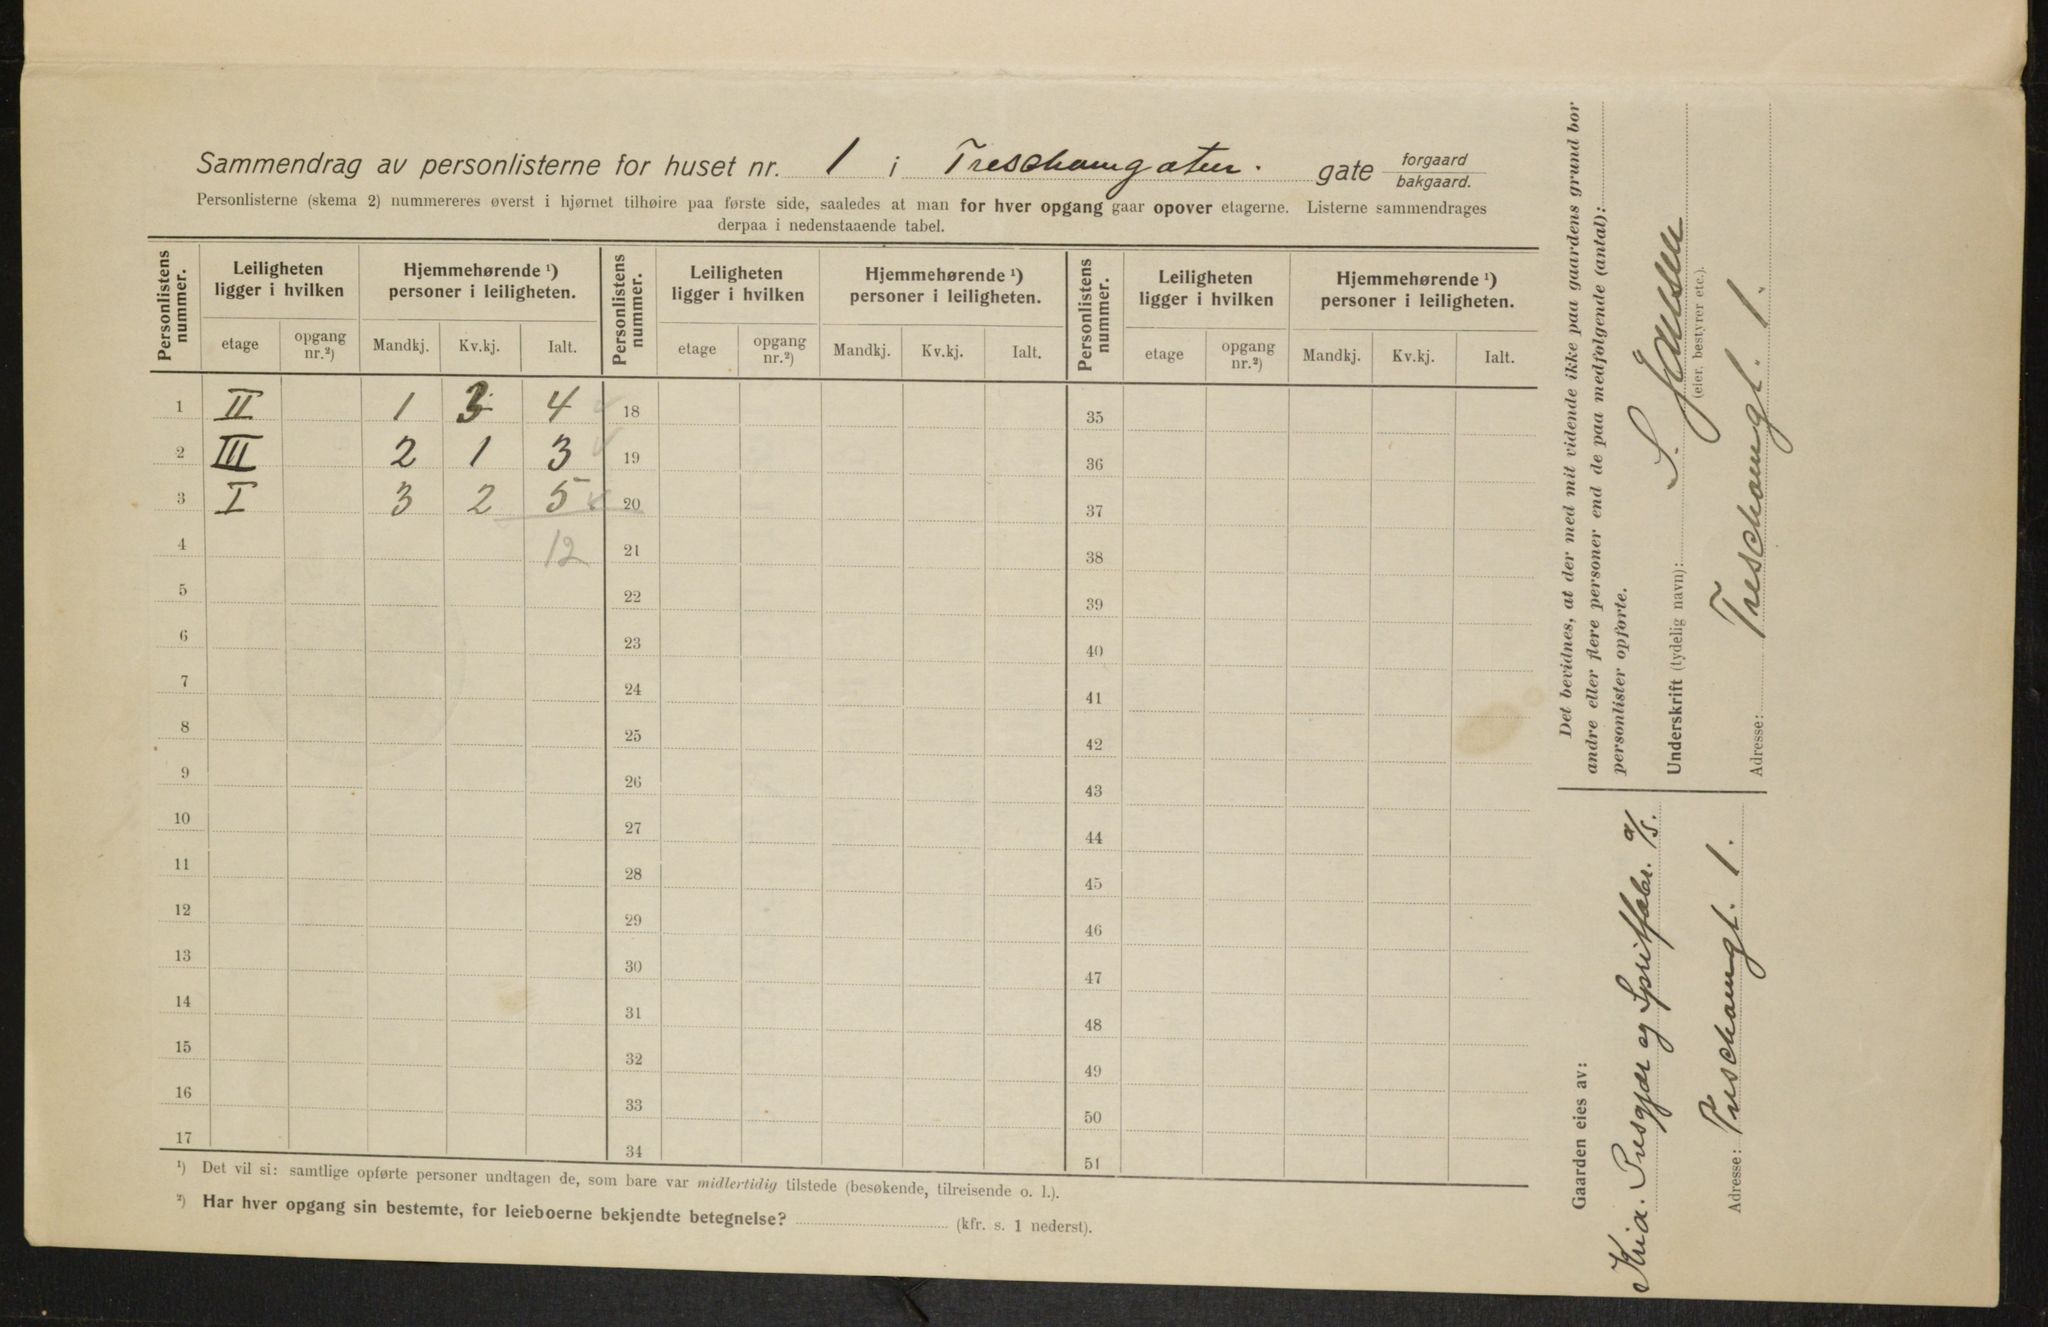 Sammendrag av personlisterne for huset nr. 1 i Treschowsgaten. gate forgaard bakgaard.
Personlisterne (skema 2) nummereres øverst i hjørnet tilhøire paa første side, saaledes at man for hver opgang gaar opover etagerne. Listerne sammendrages
derpaa i nedenstaaende tabel.
Personlistens nummer. Leiligheten ligger i hvilken Hjemmehørende ¹) personer i leiligheten. Personlistens nummer. Leiligheten ligger i hvilken Hjemmehørende ¹) personer i leiligheten. Personlistens nummer. Leiligheten ligger i hvilken Hjemmehørende ¹) personer i leiligheten.
etage opgang nr.²) Mandkj. Kv.kj. Ialt. etage opgang nr.²) Mandkj. Kv.kj. Ialt. etage opgang nr.²) Mandkj. Kv.kj. Ialt.
1 II 1 3 4 18 35
2 III 2 1 3 19 36
3 I 3 2 5 20 37
4 12 21 38
5 22 39
6 23 40
7 24 41
8 25 42
9 26 43
10 27 44
11 28 45
12 29 46
13 30 47
14 31 48
15 32 49
16 33 50
17 34 51
¹) Det vil si: samtlige opførte personer undtagen de, som bare var midlertidig tilstede (besøkende, tilreisende o. l.).
²) Har hver opgang sin bestemte, for leieboerne bekjendte betegnelse? (kfr. s. 1 nederst).
Det bevidnes, at der med mit vidende ikke paa gaardens grund bor
andre eller flere personer end de paa medfølgende (antal):
personlister opførte.
Underskrift (tydelig navn): S. Jensen
(eier, bestyrer etc.).
Adresse: Treschowsgt. 1.
Gaarden eies av:
Kria. Presgjær og Spritfabr. A/S.
Adresse: Treschowsgt. 1.